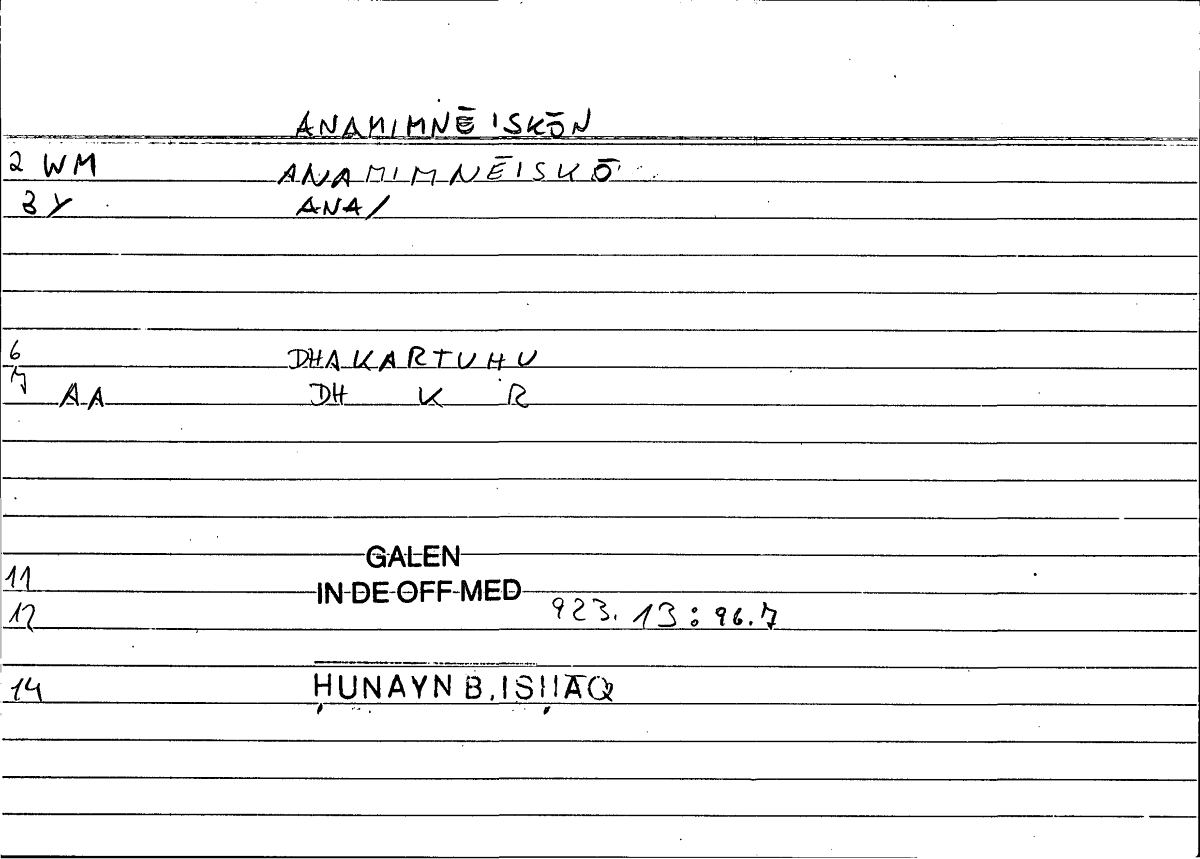 ANAMIMNĒISKŌN
2 WM ANAMIMNĒISKŌ
3 Y ANA/
6 DHAKARTUHU
7 AA DH K R
GALEN
11 IN DE OFF MED
12 923.13:96.7
14 ḤUNAYN B. ISḤĀQ